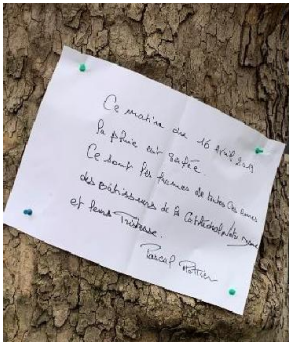 Ce matin du 16 avril 2019
la pluie est salée.
Ce sont les larmes de toutes ces âmes
des Bâtisseurs de la Cathédrale Notre Dame
et leurs Tristesse.
Pascal